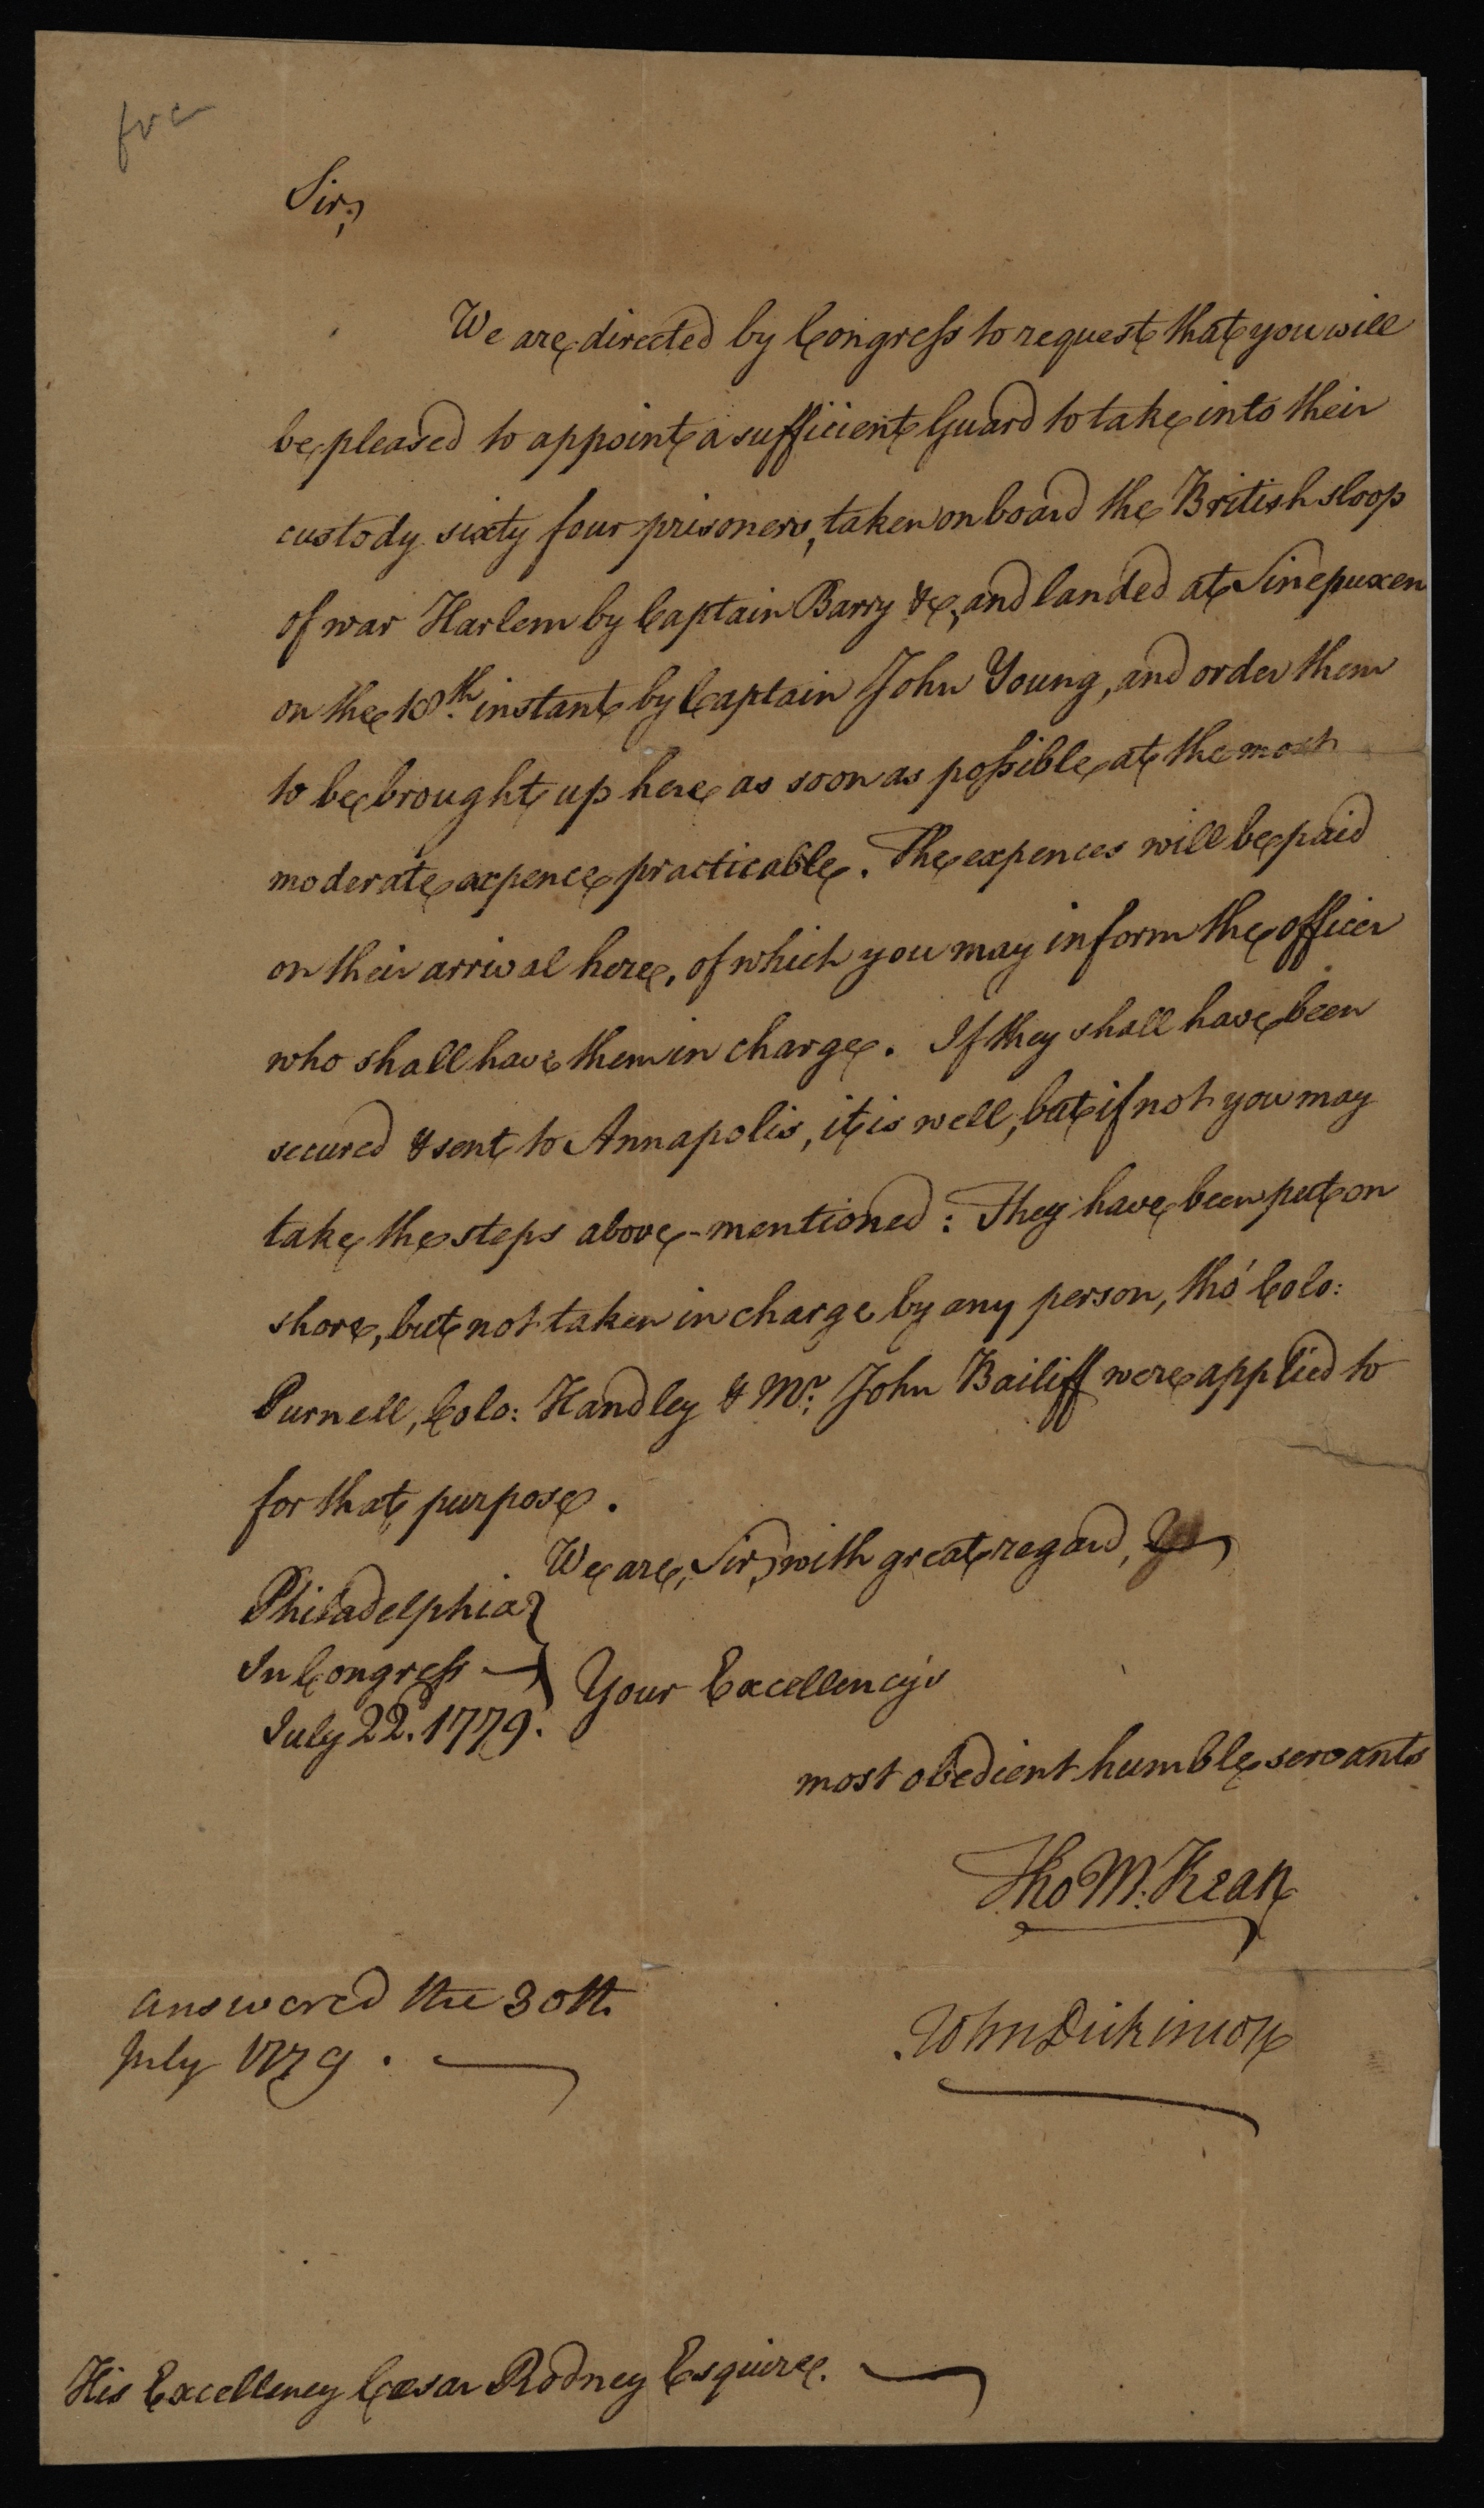 Sir,
We are directed by Congress to request that you will
be pleased to appoint a sufficient Guard to take into their
custody sixty four prisoners, taken on board the British sloop
of war Harlem by Captain Barry &c, and landed at Sinepuxen
on the 18th. instant by Captain John Young, and order them
to be brought up here as soon as possible at the most
moderate expence practicable. The expences will be paid
on their arrival here, of which you may inform the officer
who shall have them in charge. If they shall have been
secured & sent to Annapolis, it is well, but if not you may
take the steps above-mentioned: They have been put on
shore, but not taken in charge by any person, tho' Colo:
Purnell, Colo: Handley & Mr. John Bailiff were applied to
for that purpose.
We are, Sir, with great regard,
Philadelphia
In Congress
July 22d. 1779.
Your Excellency's
most obedient humble servants
Tho M:Kean
John Dickinson
answered the 30th.
July 1779.
His Excellency Cæsar Rodney Esquire.